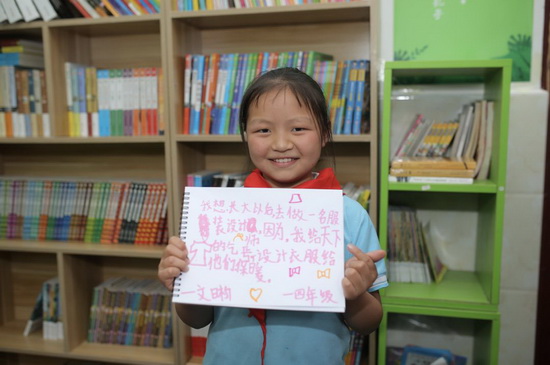 我想长大以后去做一名服
装设计师,因为,我给天下
的乞丐设计衣服给
他们保暖。
一文日构
一四年级